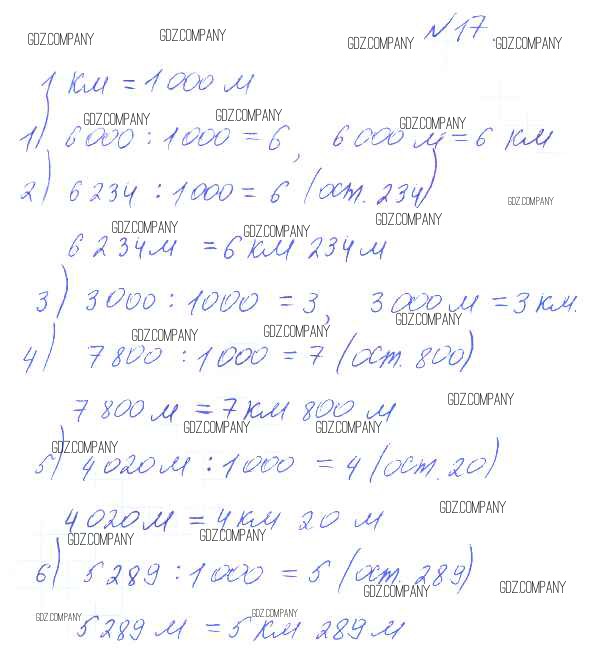 №17.
GDZ.COMPANY GDZ.COMPANY GDZ.COMPANY GDZ.COMPANY
1 км = 1000 м
GDZ.COMPANY GDZ.COMPANY GDZ.COMPANY
1) 6000 : 1000 = 6, 6000 м = 6 км
2) 6234 : 1000 = 6 (ост. 234)
GDZ.COMPANY
GDZ.COMPANY GDZ.COMPANY GDZ.COMPANY
6234 м = 6 км 234 м
3) 3000 : 1000 = 3, 3000 м = 3 км.
GDZ.COMPANY GDZ.COMPANY GDZ.COMPANY
4) 7800 : 1000 = 7 (ост. 800)
GDZ.COMPANY
7800 м = 7 км 800 м
GDZ.COMPANY GDZ.COMPANY
GDZ.COMPANY
5) 4020 м : 1000 = 4 (ост. 20)
GDZ.COMPANY
4020 м = 4 км 20 м
GDZ.COMPANY GDZ.COMPANY
6) 5289 : 1000 = 5 (ост. 289)
GDZ.COMPANY GDZ.COMPANY
GDZ.COMPANY GDZ.COMPANY
5289 м = 5 км 289 м